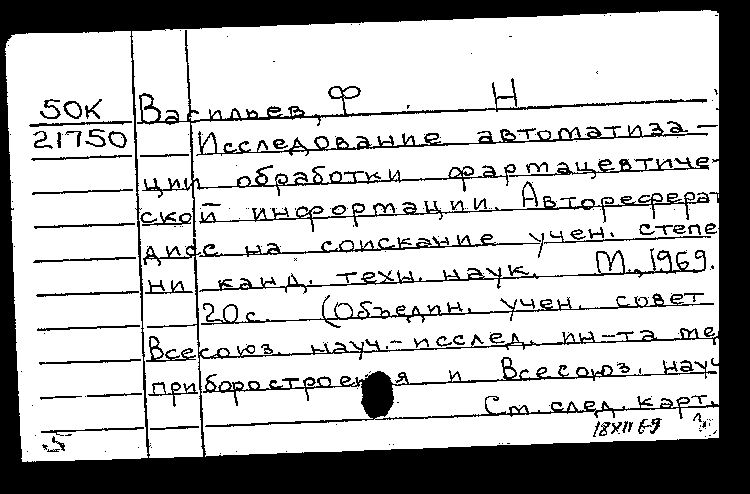 50К Васильев, Ф. Н
21750 Исследование автоматиза-
ции обработки фармацевтиче-
ской информации. Автореферат
дисс на соискание учен. степе
ни канд. техн. наук. М., 1969.
20с. (Объедин. учен. совет
Всесоюз. науч.-исслед. ин-та ме
приборостроения и Всесоюз. науч
См. след. карт.
5 18 XII 69